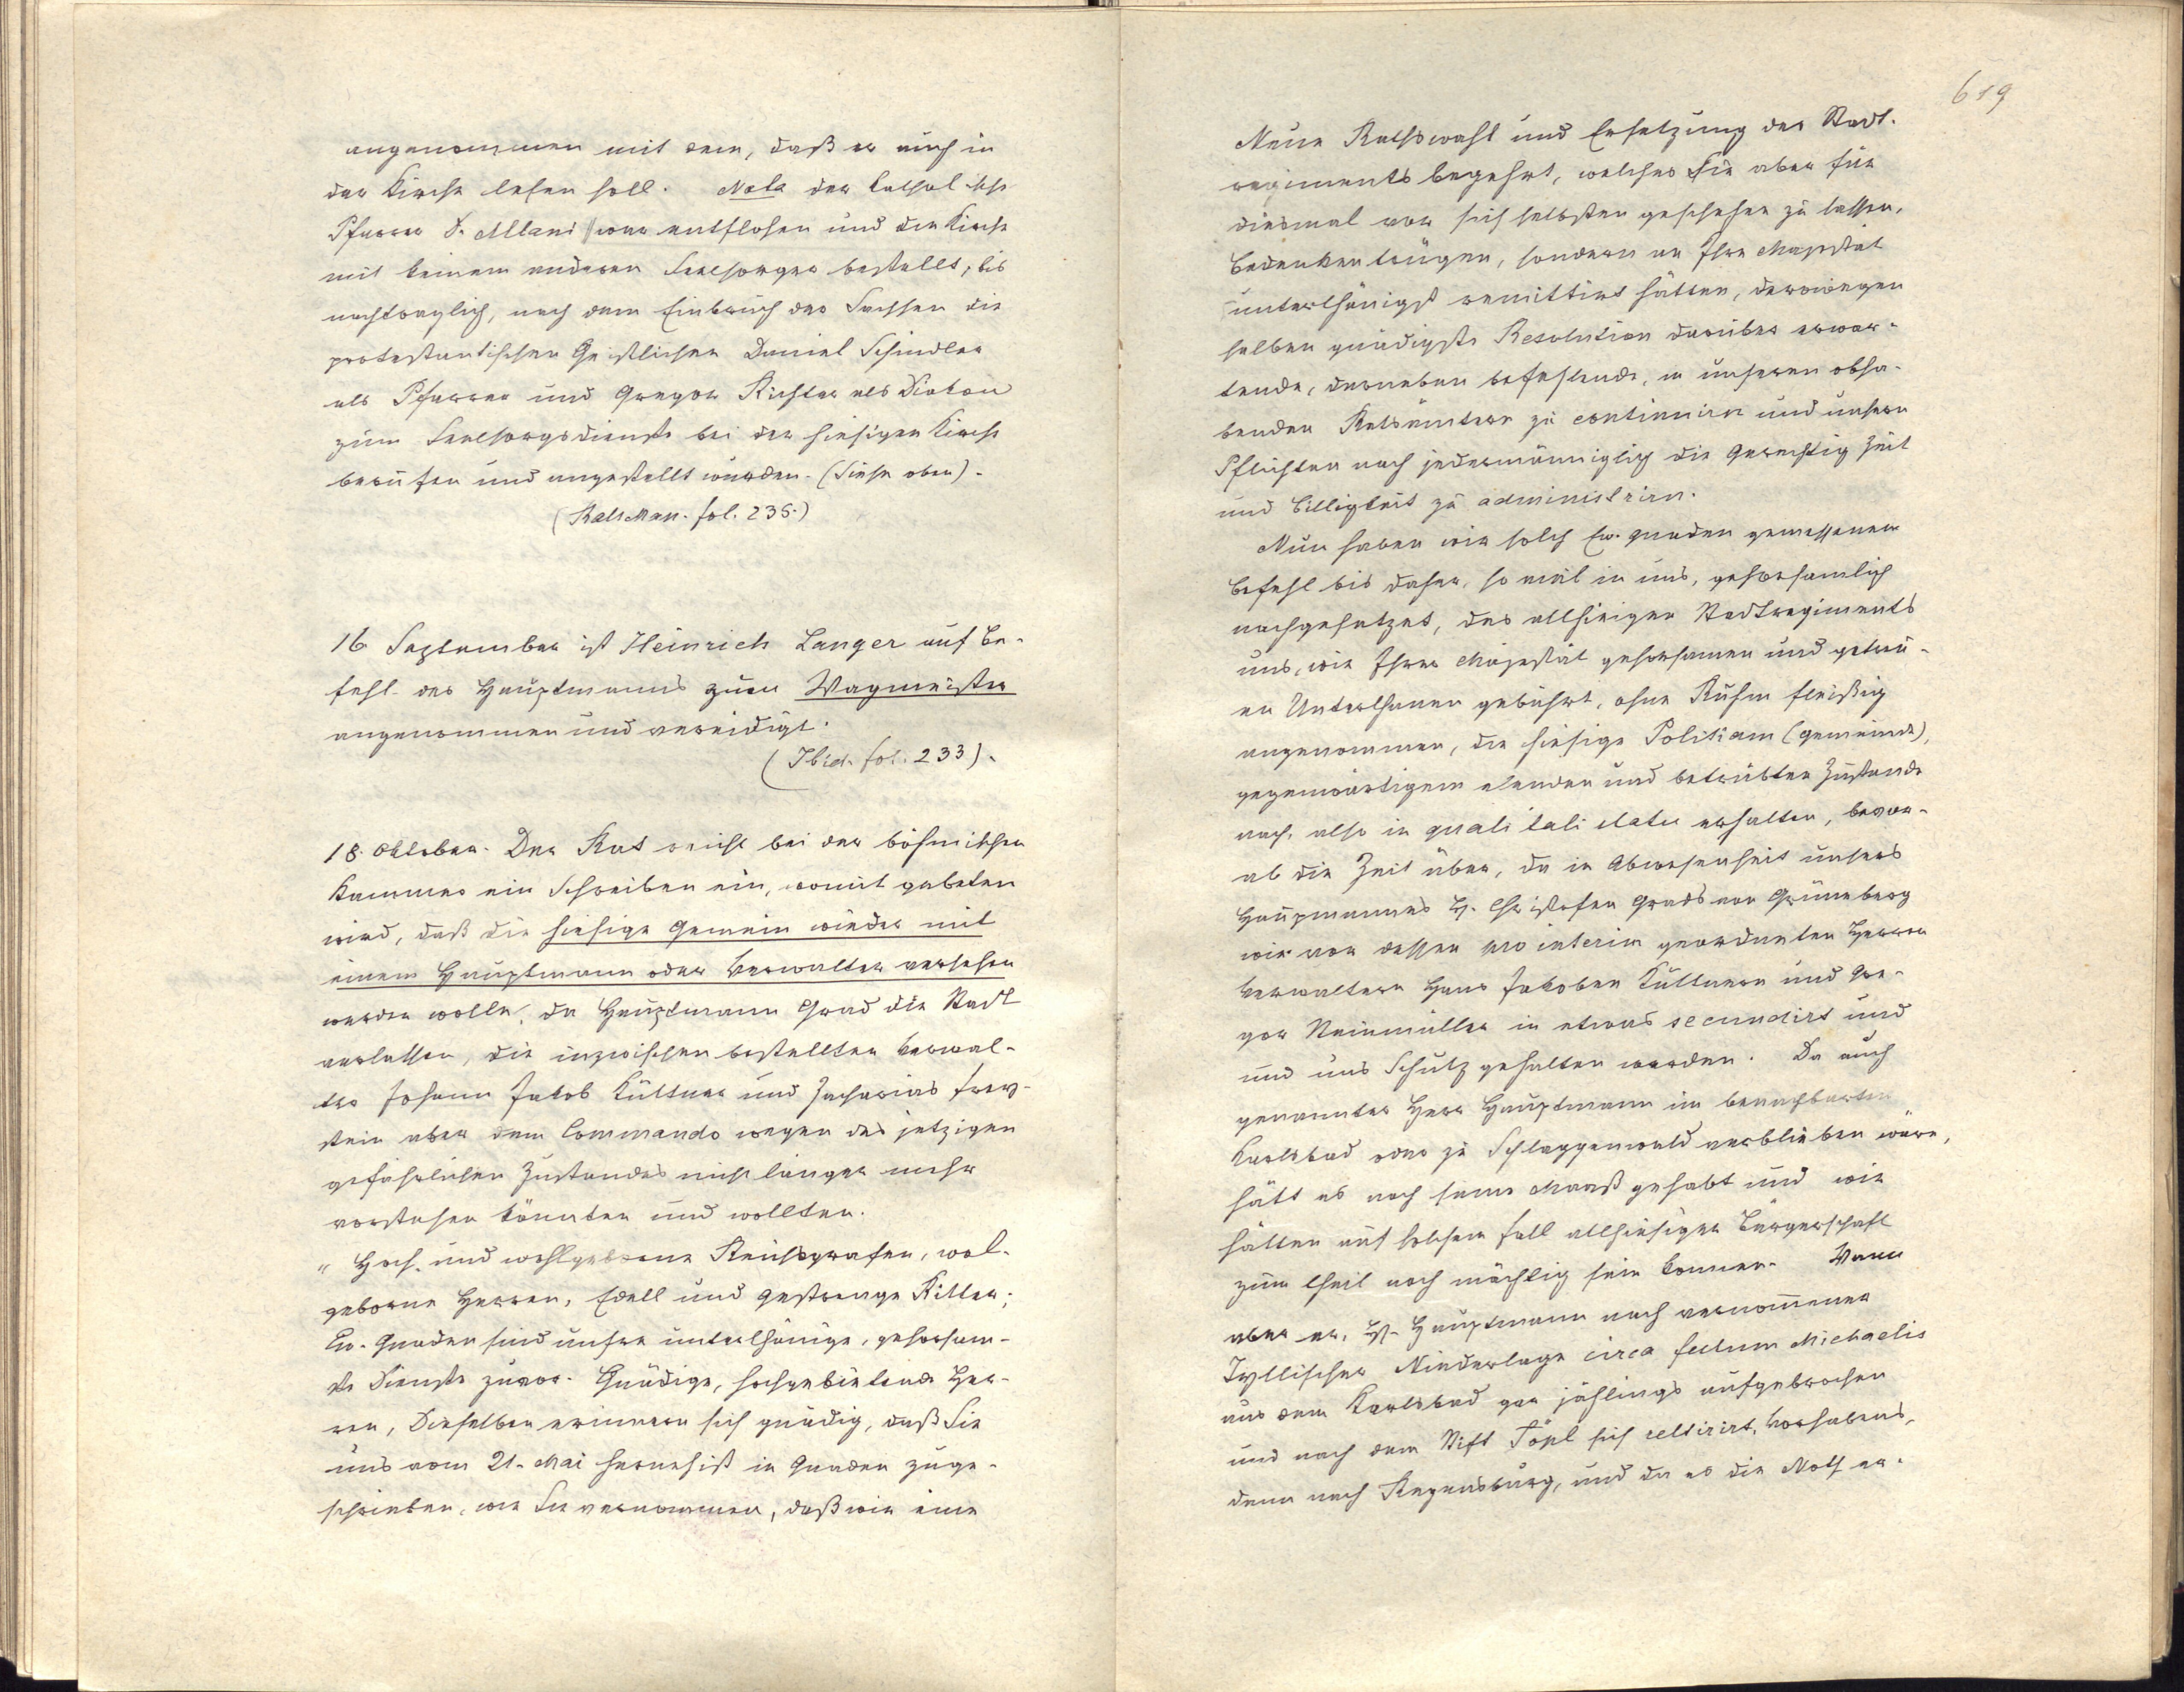 angenommen mit dem, daß er auch in
der Kirche lesen soll. Nota der katholische
Pfarrer war entflohen und die Kirche
mit keinem anderen Seelsorger bestellt, bis
nachträglich, nach dem Einbruch der Sachsen die
protestantischen Geistlichen Daniel Schindler
als Pfarrer und Gregor Richter als Diakon
zum Seelsorgsdienste bei der hiesigen Kirche
berufen und angestellt wurden. (Siehe oben).
(Rats Man. fol. 236.)
16 September ist Heinrich Langer auf Be-
fehl des Hauptmanns zum Wagmeister
angenommen und vereidigt.
(Ibid. fol. 233).
18. Oktober. Der Rat reicht bei der böhmischen
Kammer ein Schreiben ein, womit gebeten
wird, daß die hiesige Gemein wieder mit
einem Hauptmann oder Verwalter versehen
werden wolle, da Hauptmann Grad die Stadt
verlassen, die inzwischen bestellten Verwal-
ter Johann Jakob Küttner und Zacharias Frey-
stein aber dem Commando wegen des jetzigen
gefährlichen Zustandes nicht länger mehr
vorstehen könnten und wollten.
„ Hoch und wohlgeborene Reichsgrafen, wol-
geborne Herren, Edell und gestrenge Ritter;
Ew. Gnaden sind unsre unterthänige, gehorsam-
ste Dienste zuvor. Gnädige, hochgebietende Her-
ren, Dieselben erinnern sich gnädig, daß Sie
uns vom 21. Mai in Gnaden zuge-
schrieben, wie Sie vernommen, daß wir eine
619
Neue Rathswahl und Ersetzung des Stadt-
regiments begehrt, welches Sie aber für
diesmal vor sich selbsten geschehen zu lassen,
Bedenken trügen, sondern an Ihre Majestät
unterthänigst remittirt hätten, derowegen
selben gnädigste Resolution darüber erwar-
tende, darneben befehlende, in unseren obha-
benden Ratsämtern zu continuirn und unsern
Pflichten nach jedermänniglich die Gerechtigkeit
und Billigkeit zu administrirn.
Nun haben wir solch Ew. Gnaden gemessenem
Befehl bis daher, so viel in uns, gehorsamlich
nachgesetzet, des allhiesigen Stadtregiments
uns, wie Ihrer Majestät gehorsamen und getreu-
en Unterthanen gebührt, ohne Ruhm fleißig
angenommen, die hiesige Politiam (Gemeinde),
gegenwärtigem elenden und betrübten Zustande
nach, also in quali tali statu erhalten, bevor-
ab die Zeit über, da in Abwesenheit unsers
Hauptmannes H. Christofen Grads von Grüneberg
wir von dessen pro interim geordneten Herren
Verwaltern Hans Jakoben Küttnern und Gre-
gor Steinmüller in etwas secundirt und
und uns Schutz gehalten worden. Da auch
genannter Herr Hauptmann im benachbarten
Karlsbad oder zu Schlaggenwald verblieben wäre,
hätt es noch seine Maaß gehabt und wir
hätten auf solchem Fall allhiesiger Bürgerschaft
zum theil noch mächtig sein können. Wann
aber er, H. Hauptmann nach vernommener
Tyllischer Niederlage circa festum Michaelis
aus dem Karlsbad gar jählings aufgebrochen
und nach dem Stift Töpl sich retirirt, Vorhabens,
dann nach Regensburg, und da es die Noth er-